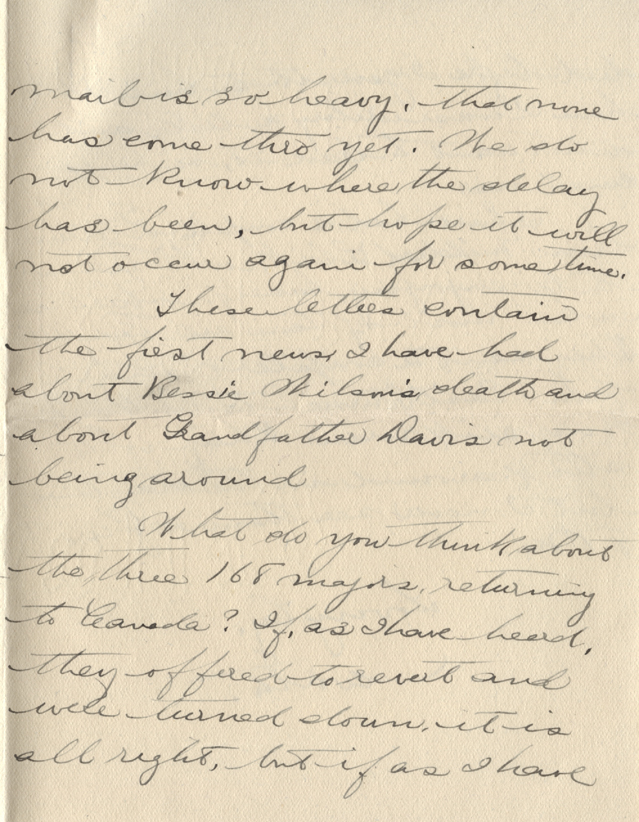 mail is so heavy, that none
has come thro yet. We do
not know where the delay
has been, but hope it will
not occur again for some time.
These letters contain
the first news I have had
about Bessie Wilson's death and
about Grandfather Davis not
being around
What do you think about
the three 168 majors, returning
to Canada? If, as I have heard,
they offered to revert and
were turned down, it is
all right, but if as I have